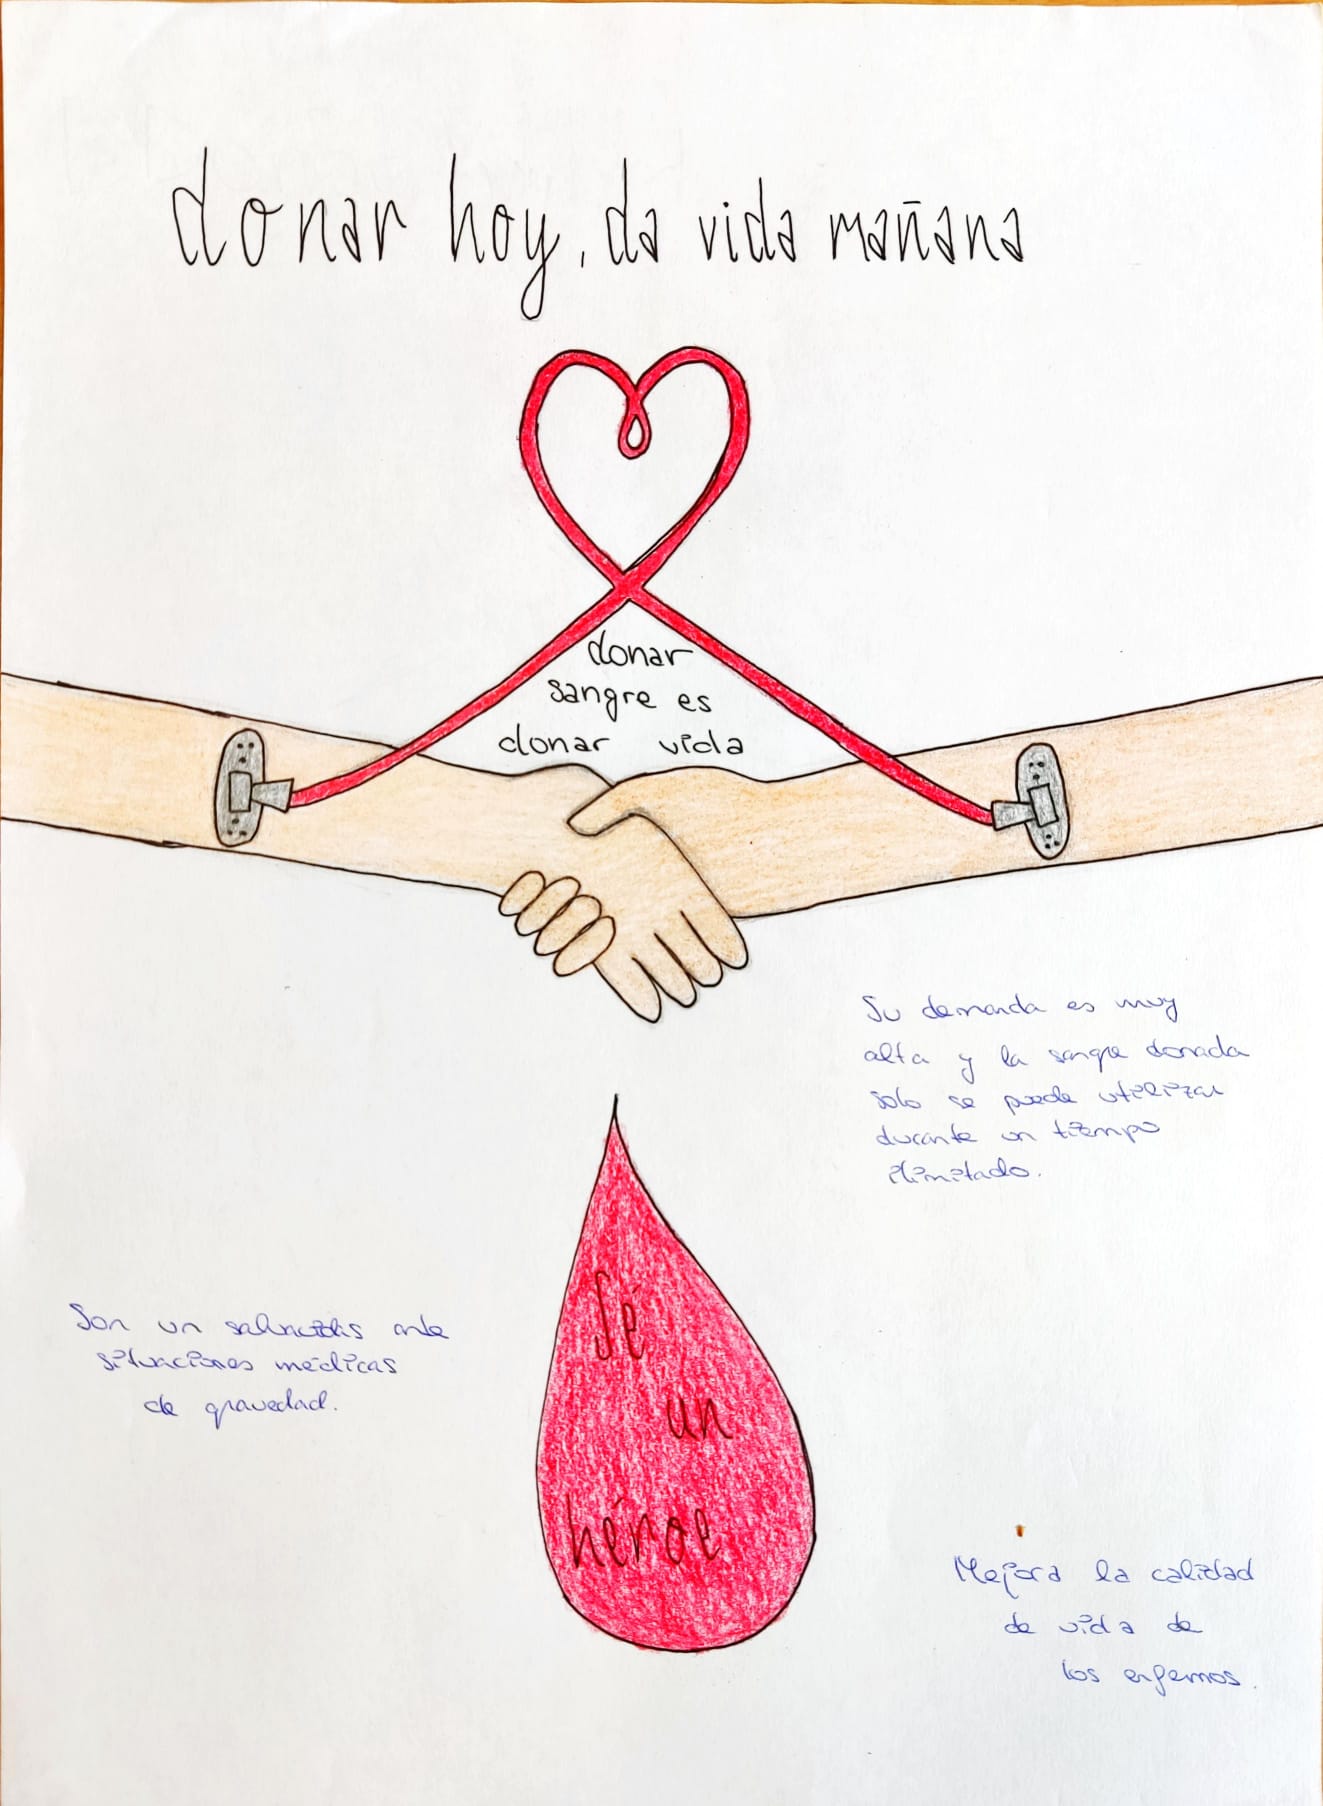 donar hoy, da vida mañana
donar
sangre es
donar vida
Su demanda es muy
alta y la sangre donada
solo se puede utilizar
durante un tiempo
ilimitado.
Sé
un
héroe
Son un salvavidas ante
situaciones médicas
de gravedad.
Mejora la calidad
de vida de
los enfermos.